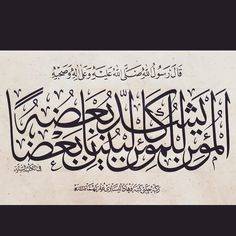 قَالَ رَسُولُ اللهِ صَلَّى اللهُ عَلَيْهِ وَعَلَى آلِهِ وَصَحْبِهِ
المؤمن للمؤمن كالبنيان يشد بعضه بعضًا